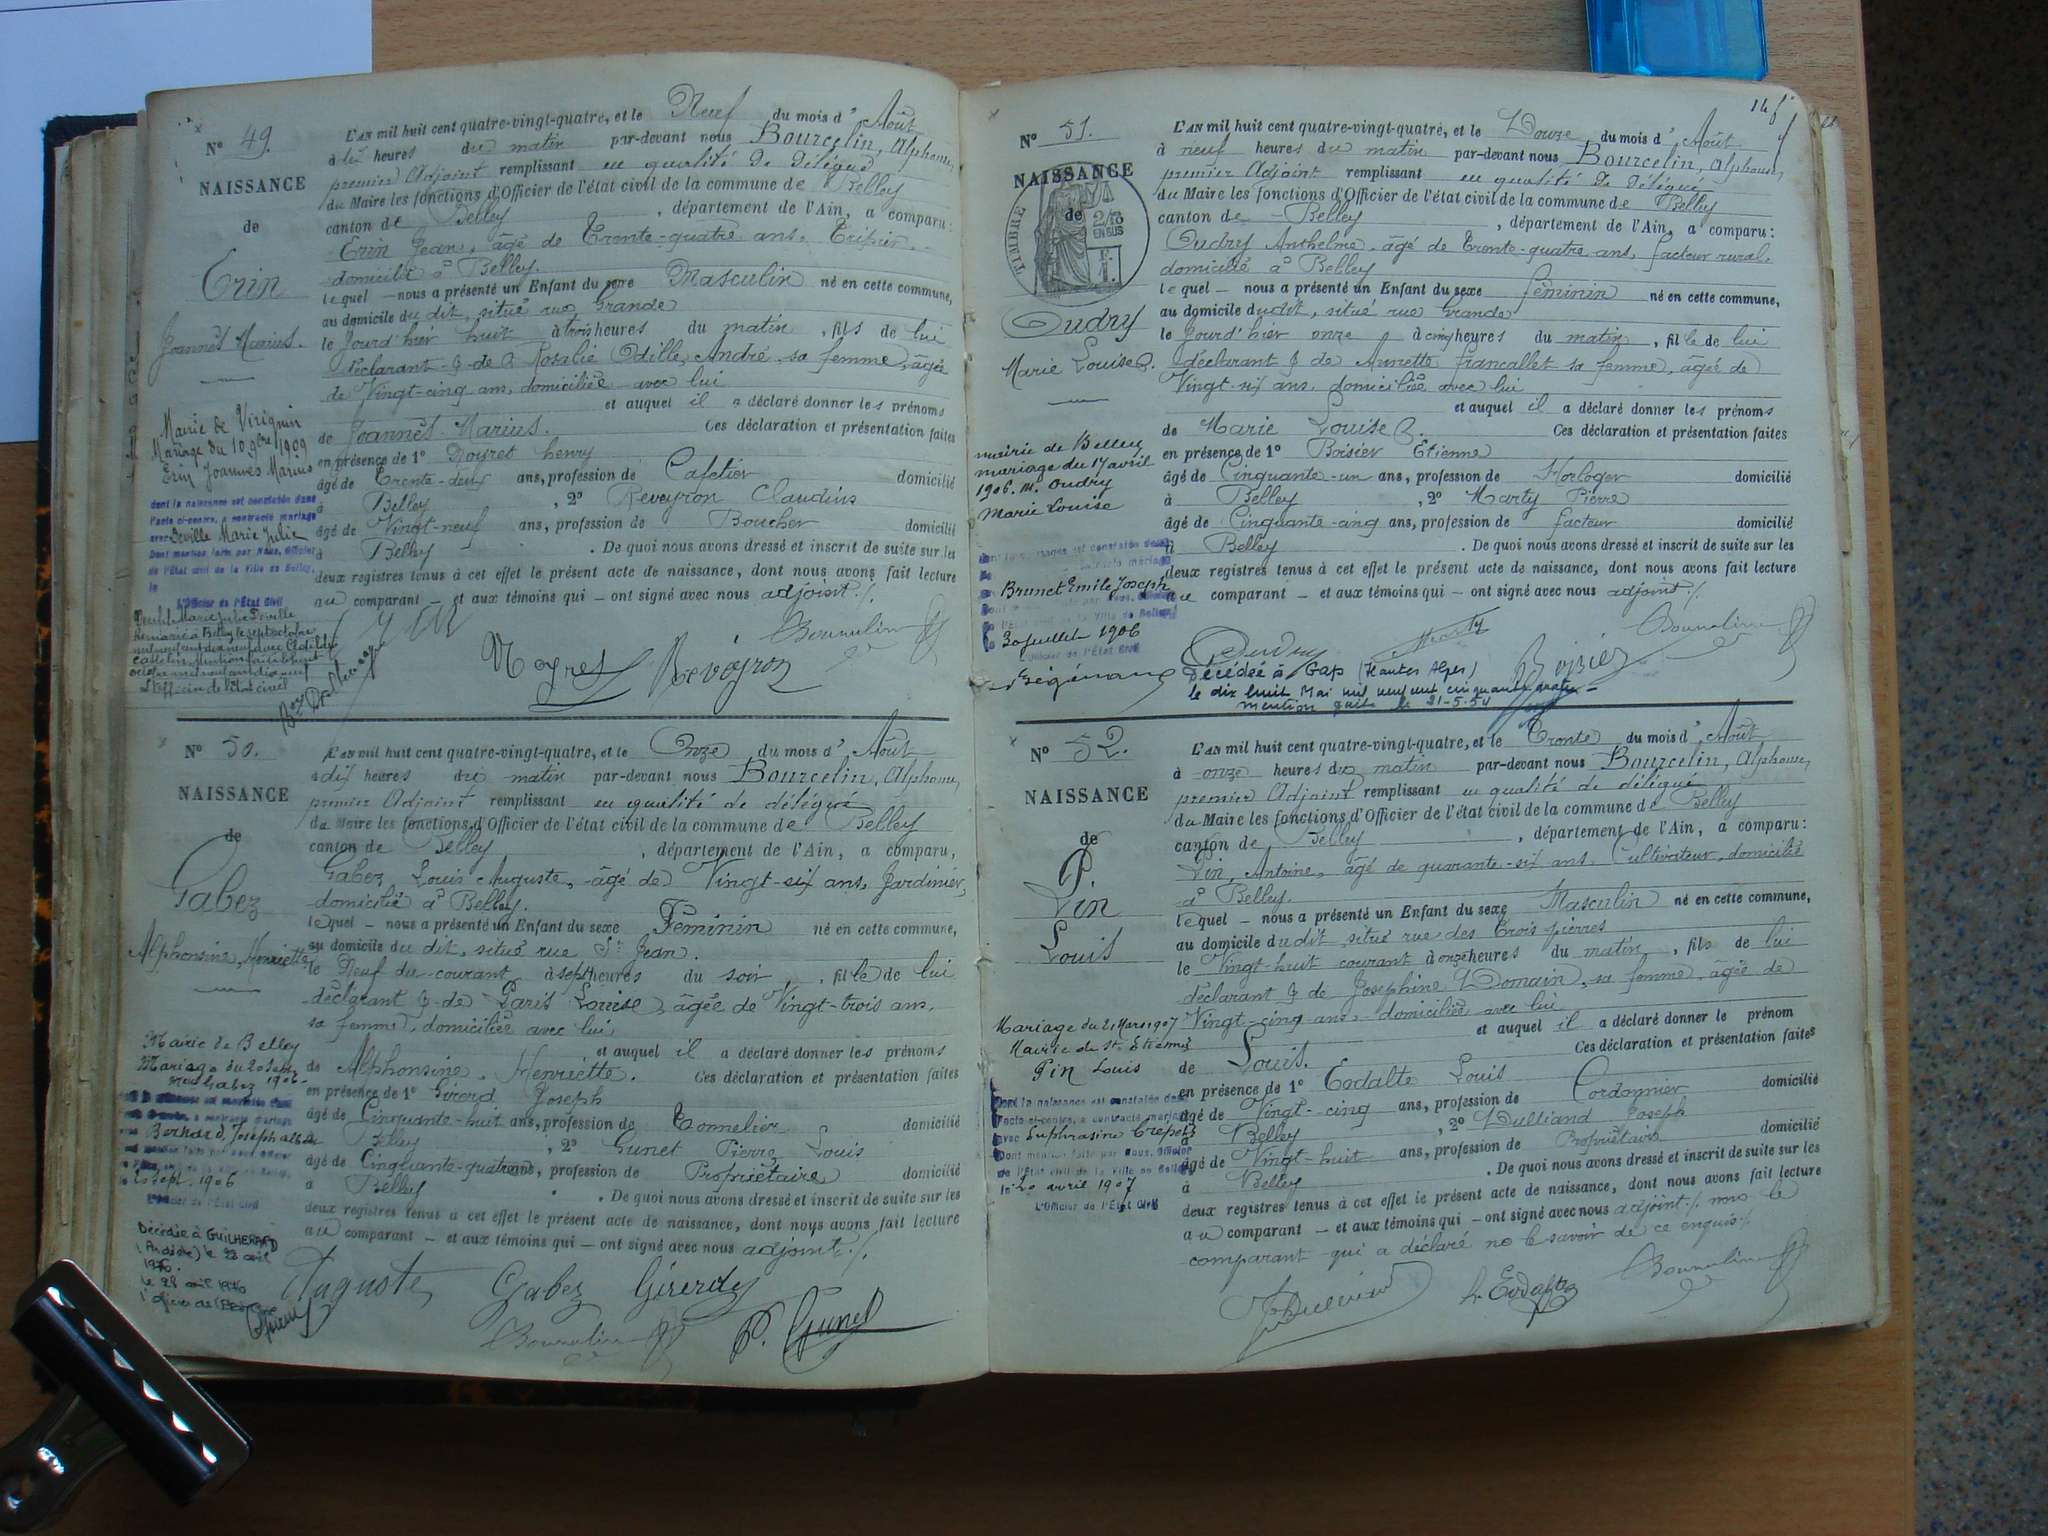 Nº 49.
NAISSANCE
de
Erin
Joannès Marius.
L'AN mil huit cent quatre-vingt-quatre, et le Neuf du mois d'Août
à heures du matin par-devant nous Bourcelin, Alphonse,
premier Adjoint remplissant en qualité de délégué
du Maire les fonctions d'Officier de l'état civil de la commune de Belley
canton de Belley, département de l'Ain, a comparu:
Erin Jean, âgé de Trente-quatre ans, Tripier,
domicilié à Belley.
lequel – nous a présenté un Enfant du sexe Masculin né en cette commune,
au domicile du dit, situé rue Grande
le jourd'hier huit à trois heures du matin, fils de lui
déclarant & de Rosalie Odille, André, sa femme, âgée
de Vingt-cinq ans, domiciliée avec lui
et auquel il a déclaré donner les prénoms
de Joannès Marius. Ces déclaration et présentation faites
en présence de 1º Noyret henry
âgé de Trente-deux ans, profession de Cafetier domicilié
à Belley, 2º Reveyron Claudius
âgé de Vingt-neuf ans, profession de Boucher domicilié
à Belley. De quoi nous avons dressé et inscrit de suite sur les
deux registres tenus à cet effet le présent acte de naissance, dont nous avons fait lecture
au comparant – et aux témoins qui – ont signé avec nous adjoint./.
Mairie de Virignin
Mariage du 10 9bre 1909
Erin Joannès Marius
dont la naissance est constatée dans
l'acte ci-contre, a contracté mariage
avec Deville Marie Julie
Dont mention faite par Nous, Officier
de l'État civil de la Ville de Belley,
le
L'Officier de l'État Civil
Noyret Reveyron Bourcelin
Nº 50.
NAISSANCE
de
Gabez
Alphonsine, Henriette
L'AN mil huit cent quatre-vingt-quatre, et le Onze du mois d'Août
à dix heures du matin par-devant nous Bourcelin, Alphonse,
premier Adjoint remplissant en qualité de délégué
du Maire les fonctions d'Officier de l'état civil de la commune de Belley
canton de Belley, département de l'Ain, a comparu,
Gabez, Louis Auguste, âgé de Vingt-six ans, Jardinier,
domicilié à Belley.
lequel – nous a présenté un Enfant du sexe Féminin né en cette commune,
au domicile du dit, situé rue St Jean.
le Neuf du courant à sept heures du soir, fille de lui
déclarant & de Paris Louise, âgée de Vingt-trois ans,
sa femme, domiciliée avec lui,
et auquel il a déclaré donner les prénoms
de Alphonsine, Henriette. Ces déclaration et présentation faites
en présence de 1º Girerd Joseph
âgé de Cinquante-huit ans, profession de Tonnelier domicilié
à Belley, 2º Gunet Pierre Louis
âgé de Cinquante-quatre ans, profession de Propriétaire domicilié
à Belley. De quoi nous avons dressé et inscrit de suite sur les
deux registres tenus à cet effet le présent acte de naissance, dont nous avons fait lecture
au comparant – et aux témoins qui – ont signé avec nous adjoint./.
Mairie de Belley
Mariage du 20
Gabez 1906
Bernard, Joseph
Sept. 1906
L'Officier de l'État Civil
Décédée à GUILHERAND
(Ardèche) le 23 avril
1976.
Auguste Gabez Girerd
Bourcelin P. Gunet
Nº 51.
NAISSANCE
de
TIMBRE
2/10
EN SUS
Oudry
Marie Louise
L'AN mil huit cent quatre-vingt-quatre, et le Douze du mois d'Août
à neuf heures du matin par-devant nous Bourcelin, Alphonse,
premier Adjoint remplissant en qualité de délégué
du Maire les fonctions d'Officier de l'état civil de la commune de Belley
canton de Belley, département de l'Ain, a comparu:
Oudry Anthelme, âgé de Trente-quatre ans, facteur rural,
domicilié à Belley
lequel – nous a présenté un Enfant du sexe féminin né en cette commune,
au domicile du dit, situé rue Grande
le jourd'hier onze à cinq heures du matin, fille de lui
déclarant & de Annette francallet sa femme, âgée de
Vingt-six ans, domiciliée avec lui
et auquel il a déclaré donner les prénoms
de Marie Louise. Ces déclaration et présentation faites
en présence de 1º Boisier Etienne
âgé de Cinquante-un ans, profession de Horloger domicilié
à Belley, 2º Marty Pierre
âgé de Cinquante-cinq ans, profession de facteur domicilié
à Belley. De quoi nous avons dressé et inscrit de suite sur les
deux registres tenus à cet effet le présent acte de naissance, dont nous avons fait lecture
au comparant – et aux témoins qui – ont signé avec nous adjoint./.
mairie de Belley
mariage du 17 avril
1906. M. Oudry
Marie Louise
Brunet Emile Joseph
30 juillet 1906
L'Officier de l'État Civil
Oudry Marty Bourcelin
Décédée à Gap (Hautes Alpes)
le dix huit Mai mil neuf cent cinquante quatre
mention faite le 21-5-54
Nº 52.
NAISSANCE
de
P.
Vin
Louis
L'AN mil huit cent quatre-vingt-quatre, et le Trente du mois d'Août
à onze heures du matin par-devant nous Bourcelin, Alphonse,
premier Adjoint remplissant en qualité de délégué
du Maire les fonctions d'Officier de l'état civil de la commune de Belley
canton de Belley, département de l'Ain, a comparu:
Vin, Antoine, âgé de quarante-six ans, Cultivateur, domicilié
à Belley.
lequel – nous a présenté un Enfant du sexe Masculin né en cette commune,
au domicile du dit, situé rue des Trois pierres
le Vingt-huit courant à onze heures du matin, fils de lui
déclarant & de Joséphine Domain, sa femme, âgée de
Vingt-cinq ans, domiciliée avec lui
et auquel il a déclaré donner le prénom
de Louis. Ces déclaration et présentation faites
en présence de 1º Eodalte Louis
âgé de Vingt-cinq ans, profession de Cordonnier domicilié
à Belley, 2º Dulliand Joseph
âgé de Vingt-huit ans, profession de Propriétaire domicilié
à Belley. De quoi nous avons dressé et inscrit de suite sur les
deux registres tenus à cet effet le présent acte de naissance, dont nous avons fait lecture
au comparant – et aux témoins qui – ont signé avec nous adjoint./. non le
comparant qui a déclaré ne le savoir de ce enquis./.
Mariage du 2 Mars 1907
Mairie de St Etienne
Pin Louis
dont la naissance est constatée dans
l'acte ci-contre, a contracté mariage
avec Euphrasine Crepet
Dont mention faite par Nous, Officier
de l'État civil de la Ville de Belley
le 20 avril 1907
L'Officier de l'État Civil
Bourcelin